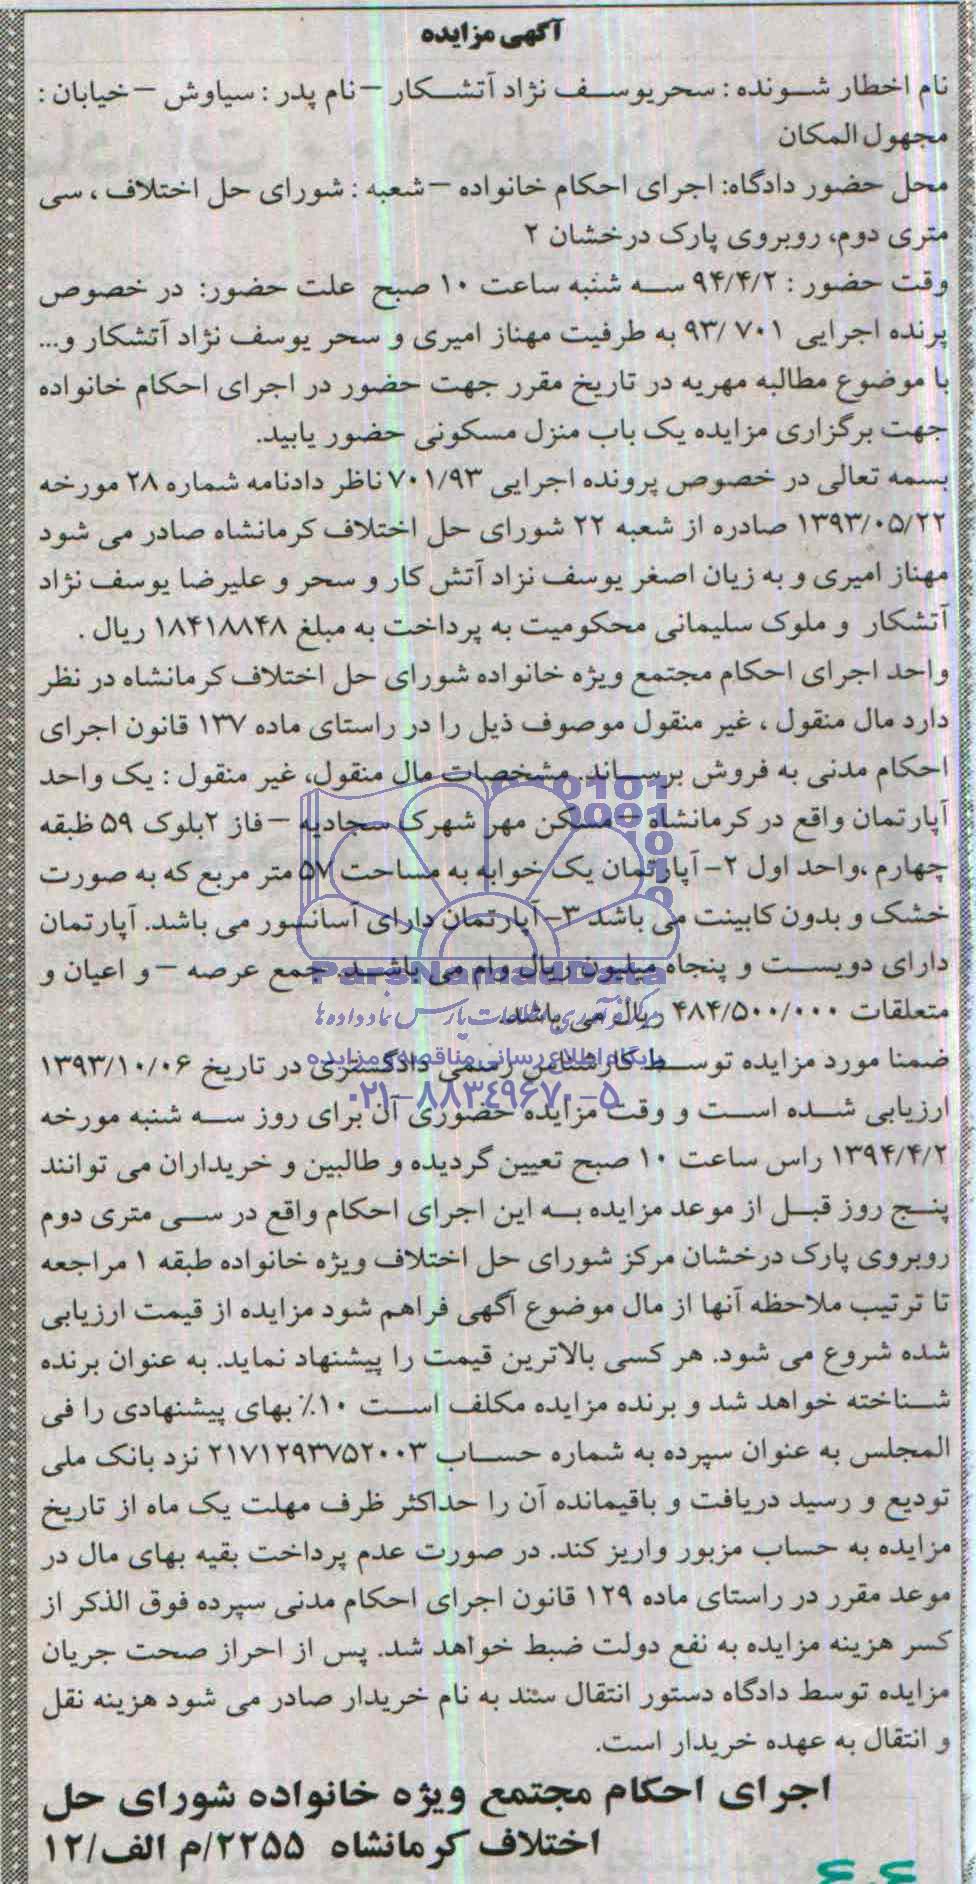 آگهی مزایده
نام اخطار شونده : سحریوسف نژاد آتشکار – نام پدر : سیاوش – خیابان :
مجهول المکان
محل حضور دادگاه: اجرای احکام خانواده – شعبه : شورای حل اختلاف ، سی
متری دوم، روبروی پارک درخشان ۲
وقت حضور : ۹۴/۴/۲ سه شنبه ساعت ۱۰ صبح علت حضور: در خصوص
پرنده اجرایی ۹۳/۷۰۱ به طرفیت مهناز امیری و سحر یوسف نژاد آتشکار و...
با موضوع مطالبه مهریه در تاریخ مقرر جهت حضور در اجرای احکام خانواده
جهت برگزاری مزایده یک باب منزل مسکونی حضور یابید.
بسمه تعالی در خصوص پرونده اجرایی ۷۰۱/۹۳ ناظر دادنامه شماره ۲۸ مورخه
۱۳۹۳/۰۵/۲۲ صادره از شعبه ۲۲ شورای حل اختلاف کرمانشاه صادر می شود
مهناز امیری و به زیان اصغر یوسف نزاد آتش کار و سحر و علیرضا یوسف نژاد
آتشکار و ملوک سلیمانی محکومیت به پرداخت به مبلغ ۱۸۴۱۸۸۴۸ ریال .
واحد اجرای احکام مجتمع ویژه خانواده شورای حل اختلاف کرمانشاه در نظر
دارد مال منقول ، غیر منقول موصوف ذیل را در راستای ماده ۱۳۷ قانون اجرای
احکام مدنی به فروش برساند. مشخصات مال منقول، غیر منقول : یک واحد
آپارتمان واقع در کرمانشاه – مسکن مهر شهرک سجادیه – فاز ۲بلوک ۵۹ ظبقه
چهارم ،واحد اول ۲- آپارتمان یک خوابه به مساحت ۵۷ متر مربع که به صورت
خشک و بدون کابینت می باشد ۳-آپارتمان دارای آسانسور می باشد. آپارتمان
دارای دویست و پنجاه میلیون ریال وام می باشد. جمع عرصه – و اعیان و
متعلقات ۴۸۴/۵۰۰/۰۰۰ ریال می باشد.
ضمنا مورد مزایده توسط کارشناس رسمی دادگستری در تاریخ ۱۳۹۳/۱۰/۰۶
ارزیابی شده است و وقت مزایده حضوری آن برای روز سه شنبه مورخه
۱۳۹۴/۴/۲ راس ساعت ۱۰ صبح تعیین گردیده و طالبین و خریداران می توانند
پنج روز قبل از موعد مزایده به این اجرای احکام واقع در سی متری دوم
روبروی پارک درخشان مرکز شورای حل اختلاف ویژه خانواده طبقه ۱ مراجعه
تا ترتیب ملاحظه آنها از مال موضوع آگهی فراهم شود مزایده از قیمت ارزیابی
شده شروع می شود. هر کسی بالاترین قیمت را پیشنهاد نماید. به عنوان برنده
شناخته خواهد شد و برنده مزایده مکلف است ۱۰٪ بهای پیشنهادی را فی
المجلس به عنوان سپرده به شماره حساب ۲۱۷۱۲۹۳۷۵۲۰۰۳ نزد بانک ملی
تودیع و رسید دریافت و باقیمانده آن را حداکثر ظرف مهلت یک ماه از تاریخ
مزایده به حساب مزبور واریز کند. در صورت عدم پرداخت بقیه بهای مال در
موعد مقرر در راستای ماده ۱۲۹ قانون اجرای احکام مدنی سپرده فوق الذکر از
کسر هزینه مزایده به نفع دولت ضبط خواهد شد. پس از احراز صحت جریان
مزایده توسط دادگاه دستور انتقال سند به نام خریدار صادر می شود هزینه نقل
و انتقال به عهده خریدار است.
اجرای احکام مجتمع ویژه خانواده شورای حل
اختلاف کرمانشاه ۲۲۵۵/م الف/۱۲
ParsNamadData
پایگاه اطلاع رسانی مناقصه و مزایده
۰۲۱-۸۸۳۴۹۶۷۰-۵